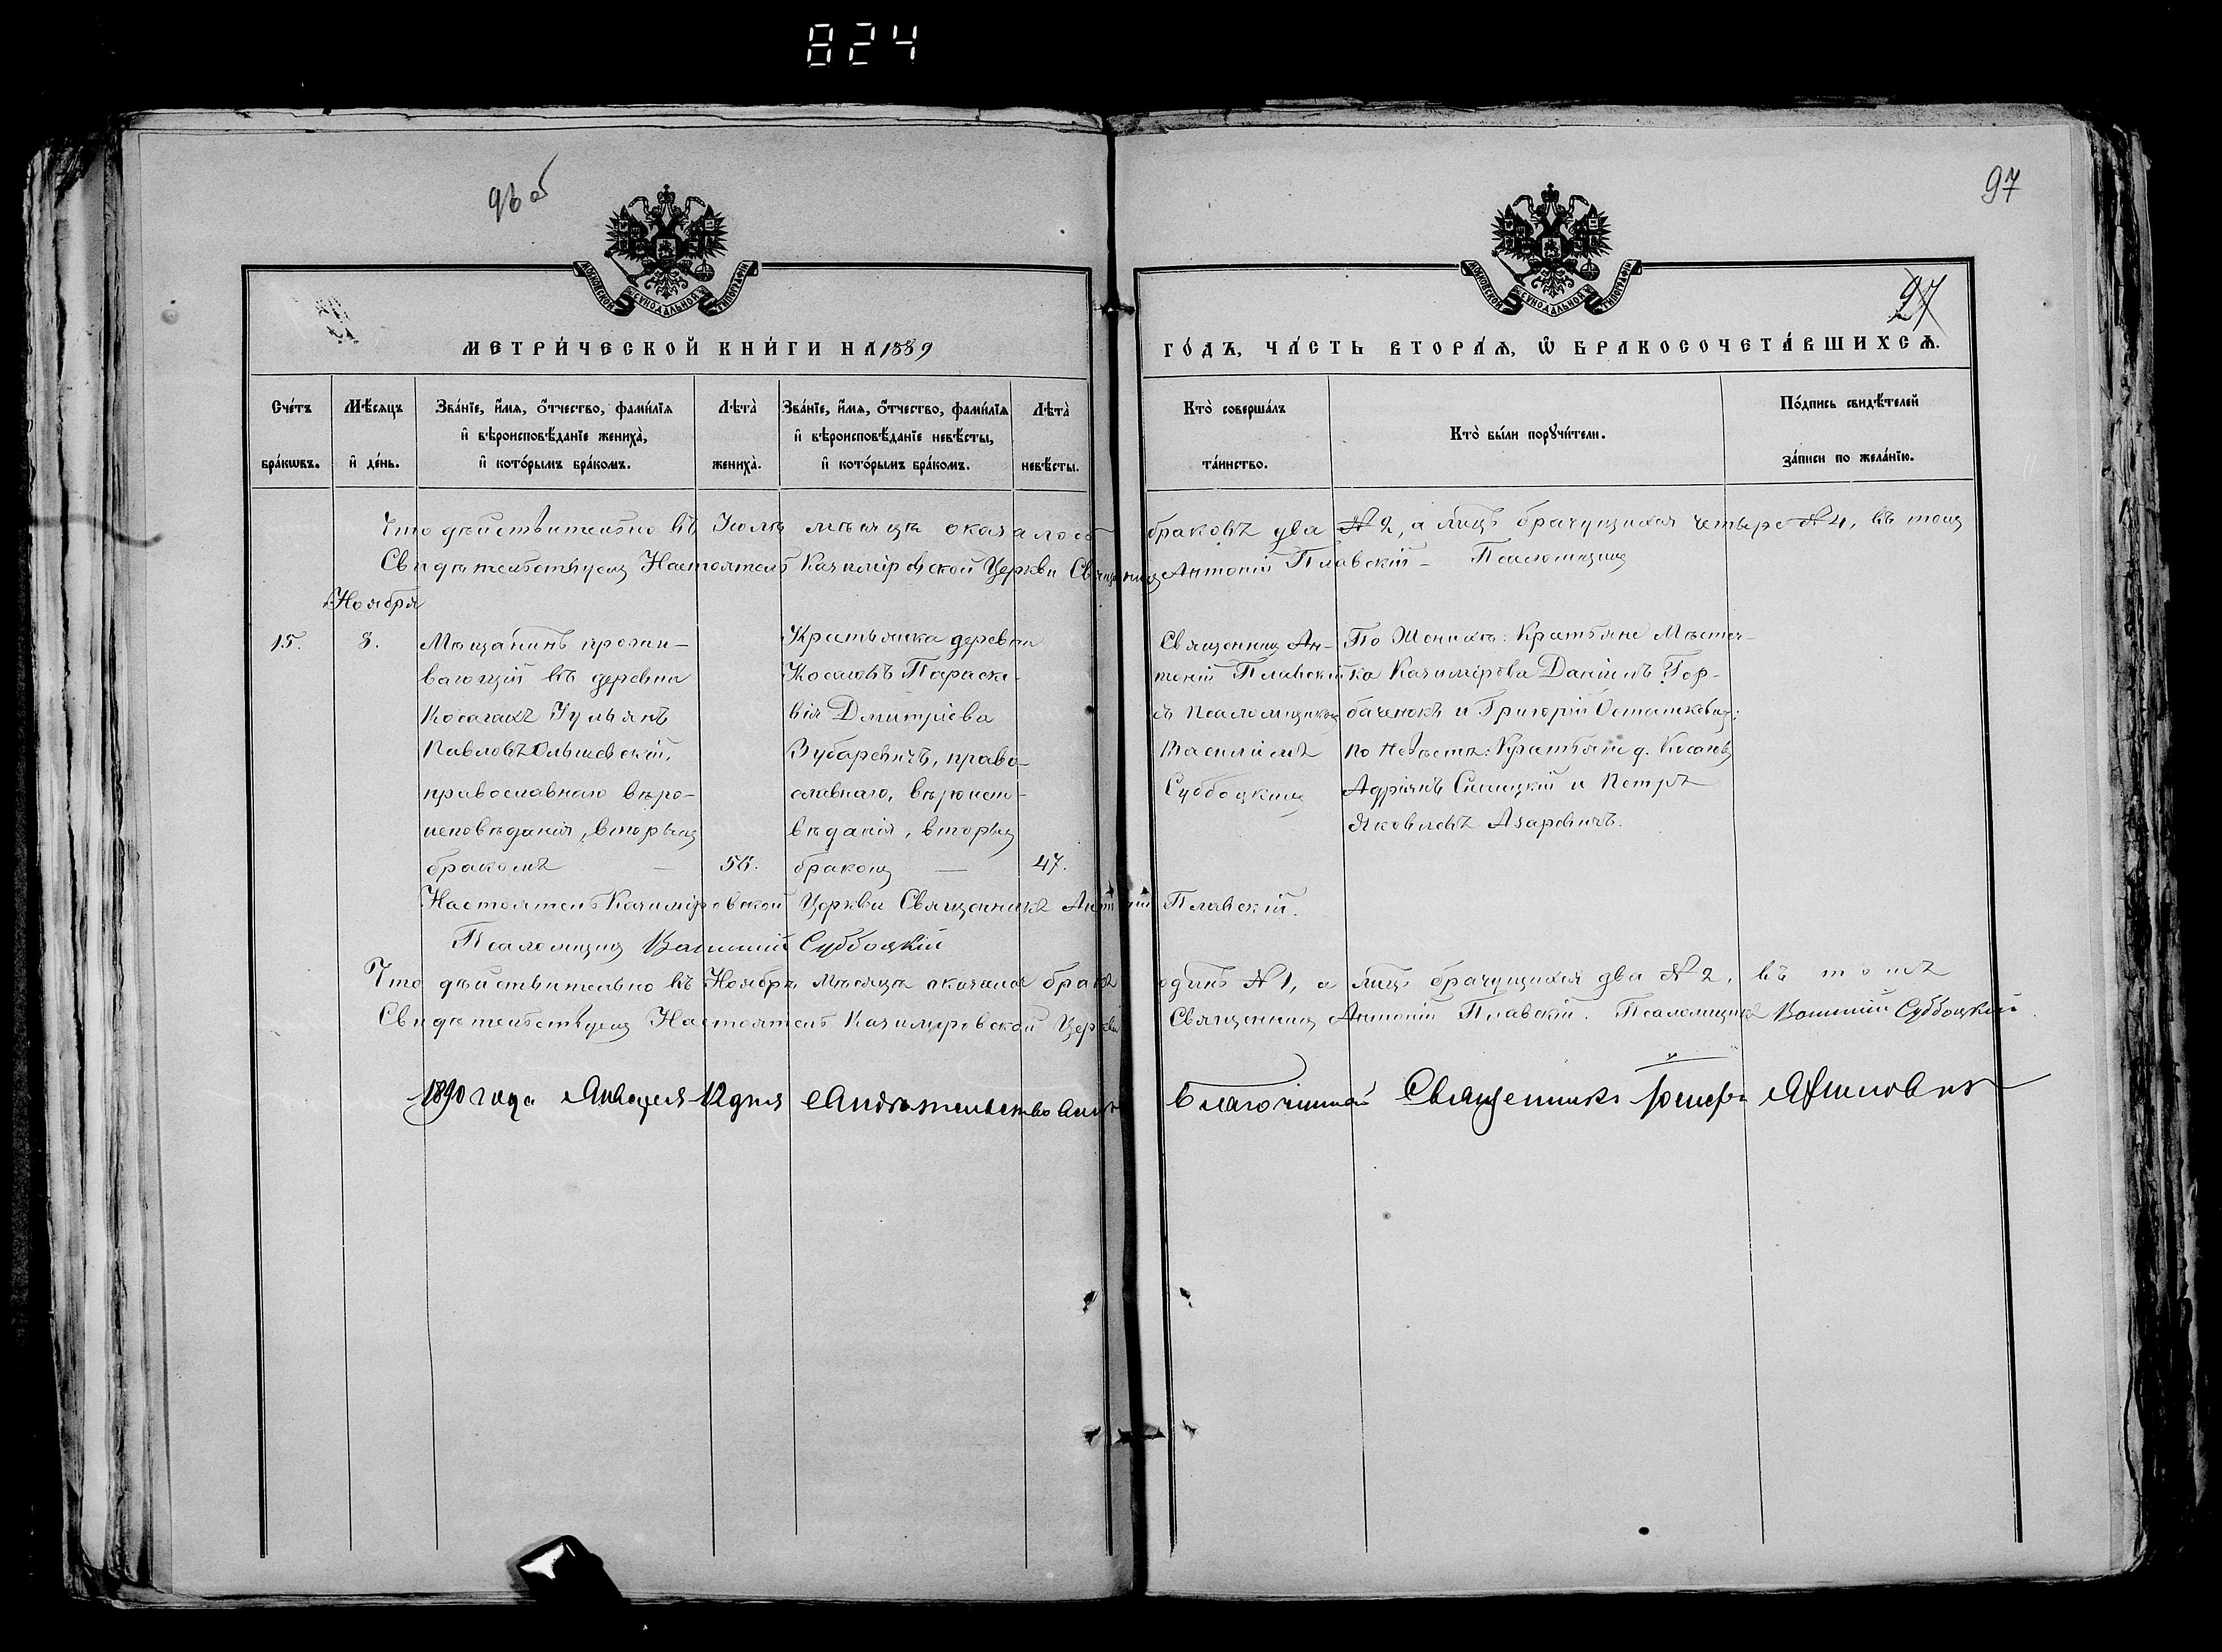 824
96 об
97
97
МОСКОВСКОЙ СѴНОДАЛЬНОЙ ТИПОГРАФІИ
МОСКОВСКОЙ СѴНОДАЛЬНОЙ ТИПОГРАФІИ
МЕТРИ́ЧЕСКОЙ КНИ́ГИ НА 1889
ГО́ДЪ, ЧА́СТЬ ВТОРА́Ѧ, Ѽ БРАКОСОЧЕТА́ВШИХСѦ.
Сче́тъ бра́кѡвъ.
Мѣ́сяцъ и҆ де́нь.
Зва́нїе, и҆́мѧ, ѻ҆́тчество, фами́лїѧ
и҆ вѣроисповѣ́данїе жениха̀,
и҆ кото́рымъ бра́комъ.
Лѣта̀ жениха̀.
Зва́нїе, и҆́мѧ, ѻ҆́тчество, фами́лїѧ
и҆ вѣроисповѣ́данїе невѣ́сты,
и҆ кото́рымъ бра́комъ.
Лѣта̀ невѣ́сты.
Кто̀ соверша́лъ та́инство.
Кто̀ бы́ли порꙋчи́тели.
По́дпись свидѣ́телей за́писи по жела́нїю.
Что дѣйствительно въ мѣсяцѣ оказалось браковъ два № 2, а лицъ брачущихся четыре № 4, въ томъ
Свидѣтельствуемъ Настоятель Казимировской Церкви Священникъ Антоній Плавскій – Псаломщикъ
Ноября
15.
8.
Мѣщанинъ прожи-
вающій въ деревни
Косагахъ Іульянъ
Павловъ Ольшевскій,
православнаго вѣро-
исповѣданія, вторымъ
бракомъ —
56.
Крестьянка деревни
Параске-
вія Дмитріева
Зубаревичъ, право-
славнаго, вѣроиспо-
вѣданія, вторымъ
бракомъ —
47.
Священникъ Ан-
тоній Плавскій
съ псаломщикомъ
Василіемъ
Субботкимъ
По Женихѣ: Крестьяне Мѣстеч-
ка Казимірова Даніилъ Гор-
баченокъ и Григорій Осташкевичъ;
по Невѣстѣ: Крестьяне д.
Адріянъ и Петръ
Яковлевъ Азаревичъ.
Настоятель Казиміровской Церкви Священникъ Антоній Плавскій.
Псаломщикъ Василій Субботкій
Что дѣйствительно въ Ноябрѣ мѣсяцѣ оказался бракъ одинъ № 1, а лицъ брачущихся два № 2, въ томъ
Свидѣтельствуемъ Настоятель Казимировской Церкви Священникъ Антоній Плавскій. Псаломщикъ Василій Субботкій.
1890 года Января 12 дня Благочинный Священникъ